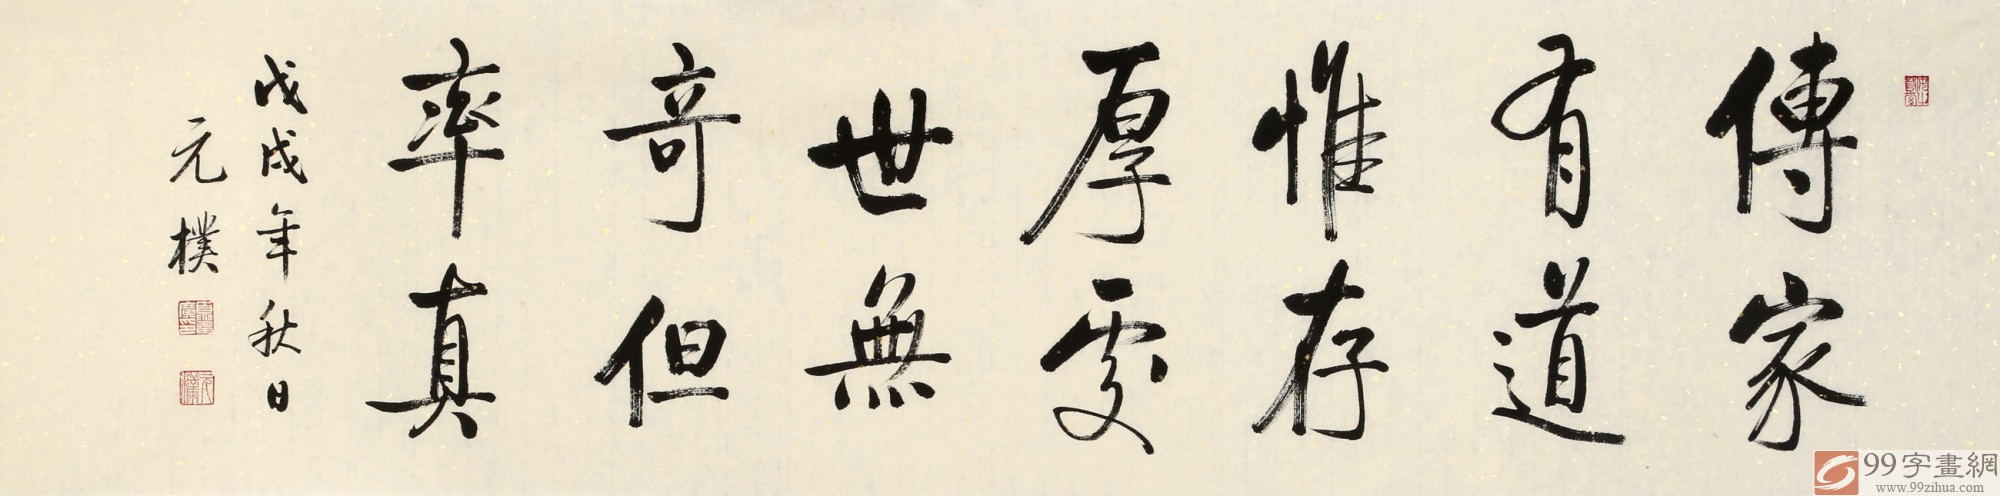 傳家
有道
惟存
厚處
世無
奇但
率真
戊戌年秋日
元樸
99字畫網
www.99zihua.com